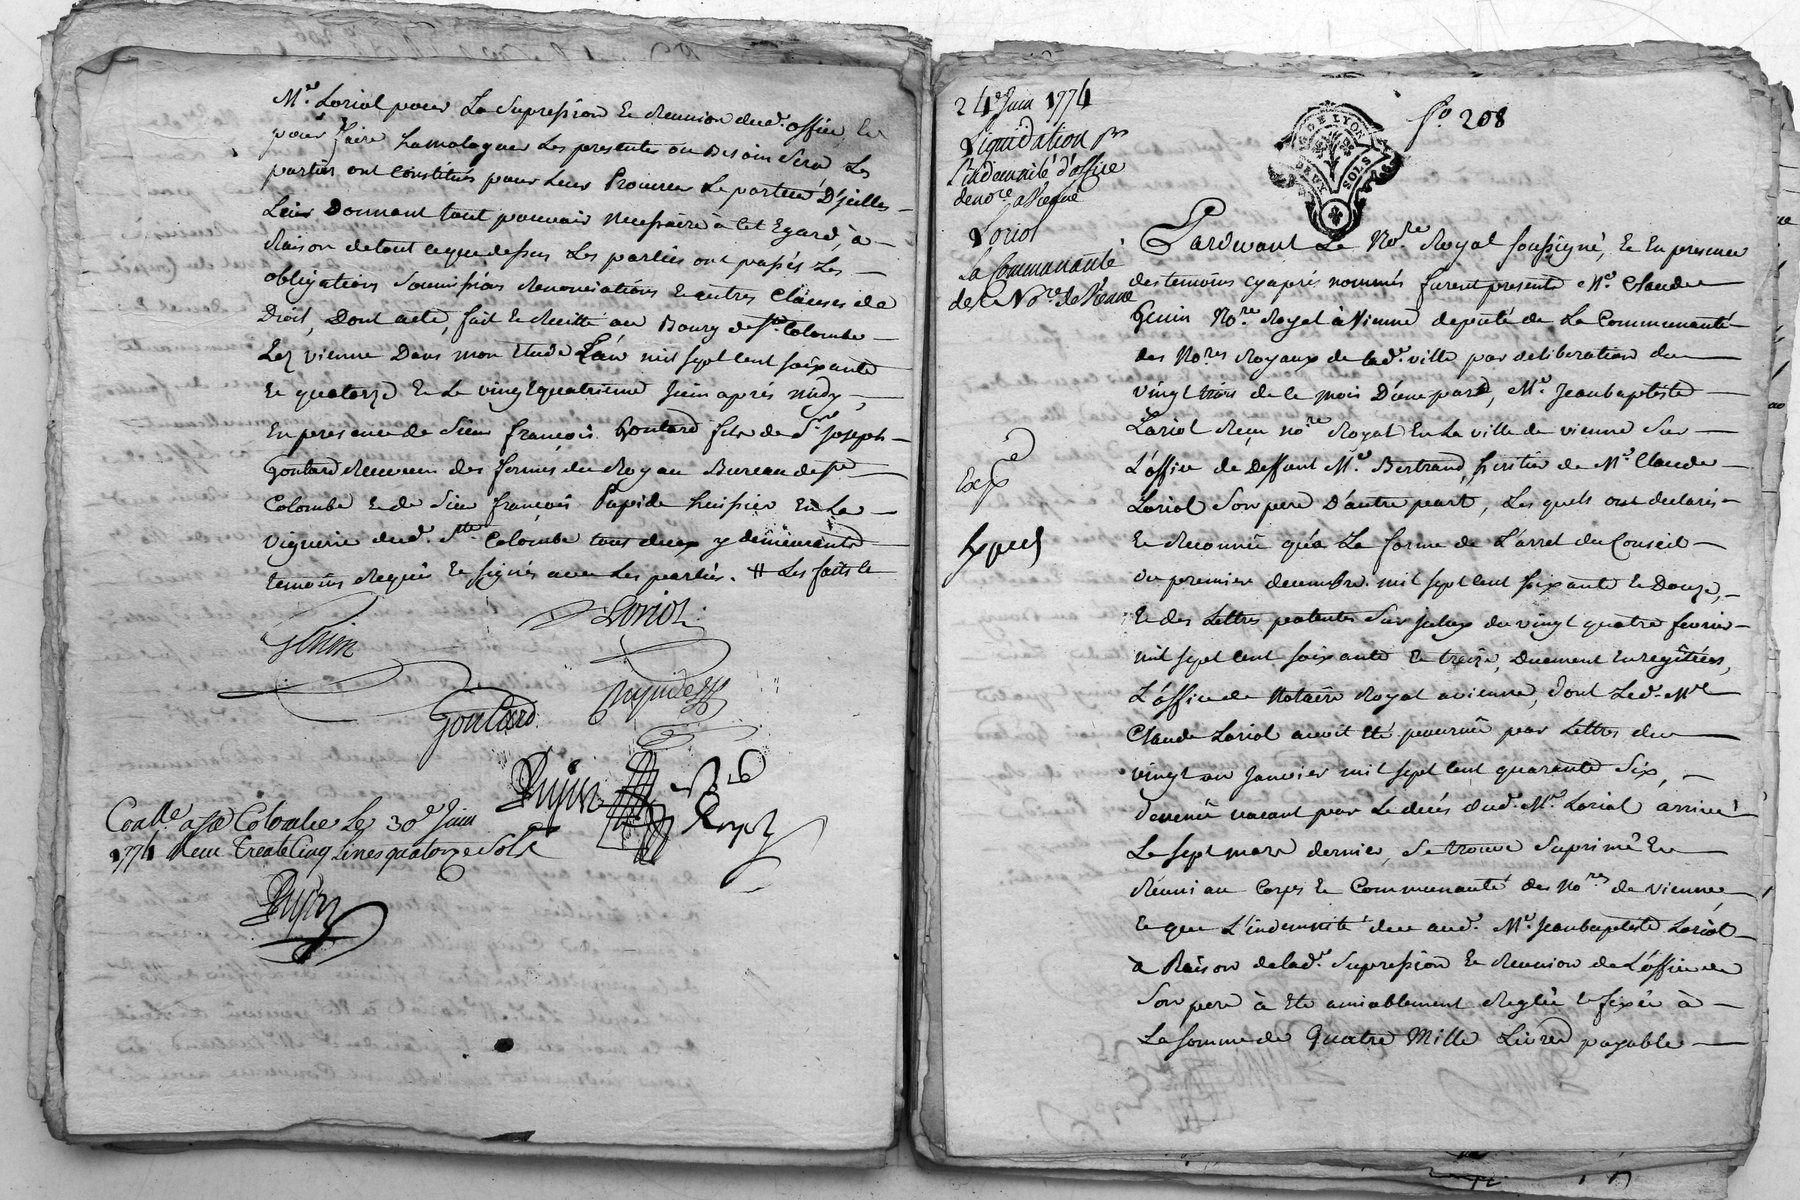 Mre. Loriol pour La Supression Et Reunion dud. office, Et
pour faire homologuer Les presentes ou Besoin Sera, Les
parties ont Constitués pour Leur Procureur Le porteur D'jcelles
Leur Donnant tout pouvoir necessaire à Cet Egard, à
Raison de tout ceque dessus Les parties ont passés Les
obligations Soumissions Renonciations Et autres Clauses de
Droit, Dont acte, fait Et Recitté au Bourg de Ste Colombe
Lez vienne Dans mon Etude L'an mil sept cent soixante
Et quatorze Et Le vingt quatrieme Juin après midy,
En presence de Sieur françois Goutard fils de Sr. Joseph
Goutard Receveur des fermes du Roy au Bureau de Ste
Colombe Et de Sieur françois Huissier En La
viguerie dud. Ste Colombe tous deux y demeurants
temoins Requis Et signés avec Les parties. # Les faits Le
Genin
Loriol
Goutard
Dujin
Conllé. a Ste Colombe Le 30e Juin
1774 Reçu Trente Cinq Livres quatorze Sols
Dujin
24e Juin 1774
Liquidation pr
L'indemnité d'office
de nore. a Vienne
Loriol
La Communauté
des Nores de Vienne
Expé
DE LYON
DEUX SOLS
fo. 208
Pardevant Le Nore. Royal soussigné, Et En presence
des temoins cy après nommés furent presents Mre. Claude
Genin Nore. Royal à Vienne deputé de La Communauté
des Nores Royaux de lad. ville par deliberation du
vingt trois de ce mois D'une part, Mre. Jean baptiste
Loriol Reçu nore Royal En La ville de vienne Sur
L'office de Deffunt Mre. Bertrand, heritier de Mre. Claude
Loriol Son pere D'autre part, Les quels ont declarés
Et Reconnu qu'a La forme de L'arret du Conseil
du premier decembre mil sept cent soixante Et Douze,
Et des Lettres patentes Sur jceluy du vingt quatre fevrier
mil sept cent soixante Et treize, Duement Enregistrées,
L'office de Notaire Royal a vienne, dont Led. Mre
Claude Loriol avoit Eté pourvû par Lettres du
vingt un Janvier mil sept cent quarante Six,
devenû vacant par Le decés dud. Mre. Loriol arrivé
Le sept mars dernier, Se trouve Suprimé Et
Réuni au Corps Et Communauté des Nores de vienne
Et que L'indemnité due aud. Mre. Jean baptiste Loriol
à Raison de lad. Supression Et Reunion de L'office de
Son pere à Eté amiablement Reglée Et fixée à
La somme de Quatre Mille Livres payable